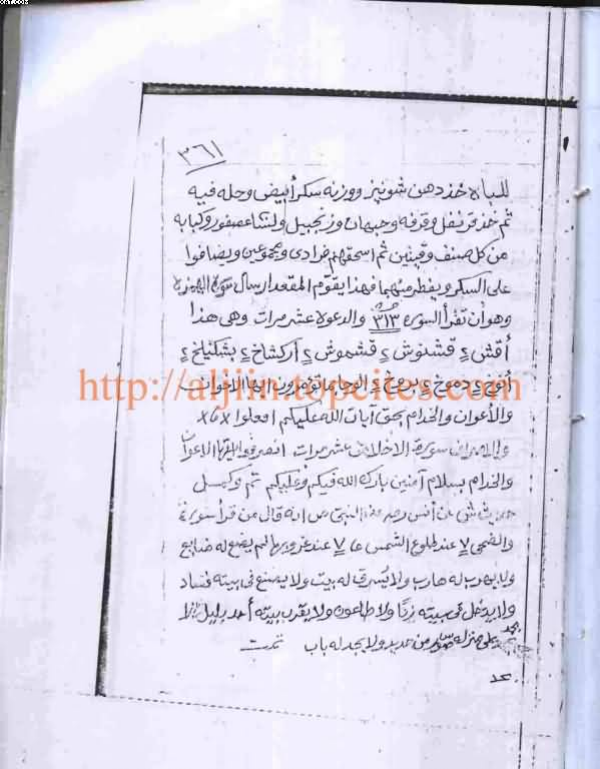 ٣٦١
للباه خذ دهن شونيز ووزنه سكر أبيض وحله فيه
ثم خذ قرنفل وقرفه وحبهان وزنجبيل ولسان عصفور وكبابه
من كل صنف وقيتين ثم اسحقهم فرادى ومجموعين ويضافوا
على السكر ويفطر منهما فهذا يقوم المقعد ارسال سورة الهمزة
وهو أن تقرأ السورة ٣١٣ مرة والدعوة عشر مرات وهي هذا
أقش ٢ قشنوش ٢ قشموش ٢ أركشاخ ٢ بشليلخ ٢
أنوخ ٢ دموخ ٢ بروخ ٢ الوحا ما تؤمرون ايها الاخوان
http://aljjin.topcites.com
والأعوان والخدام بحق آيات الله عليكم افعلوا
سورة الاخلاص عشر مرات انصرفوا ايتها الاعوان
والخدام بسلام آمنين بارك الله فيكم وعليكم تم وكمل
حديث عن أنس عن النبي ص انه قال من قرأ سورة
والضحى ٧ عند طلوع الشمس ٧ عند غروبها لم يضع له ضايع
ولا يهرب له هارب ولا يسرق له بيت ولا يصنع في بيته فساد
ولا يدخل في بيته زنا ولا طاعون ولا يقرب بيته أحد بليل إلا
على منزله من حديد ولا يجد له باب تمت